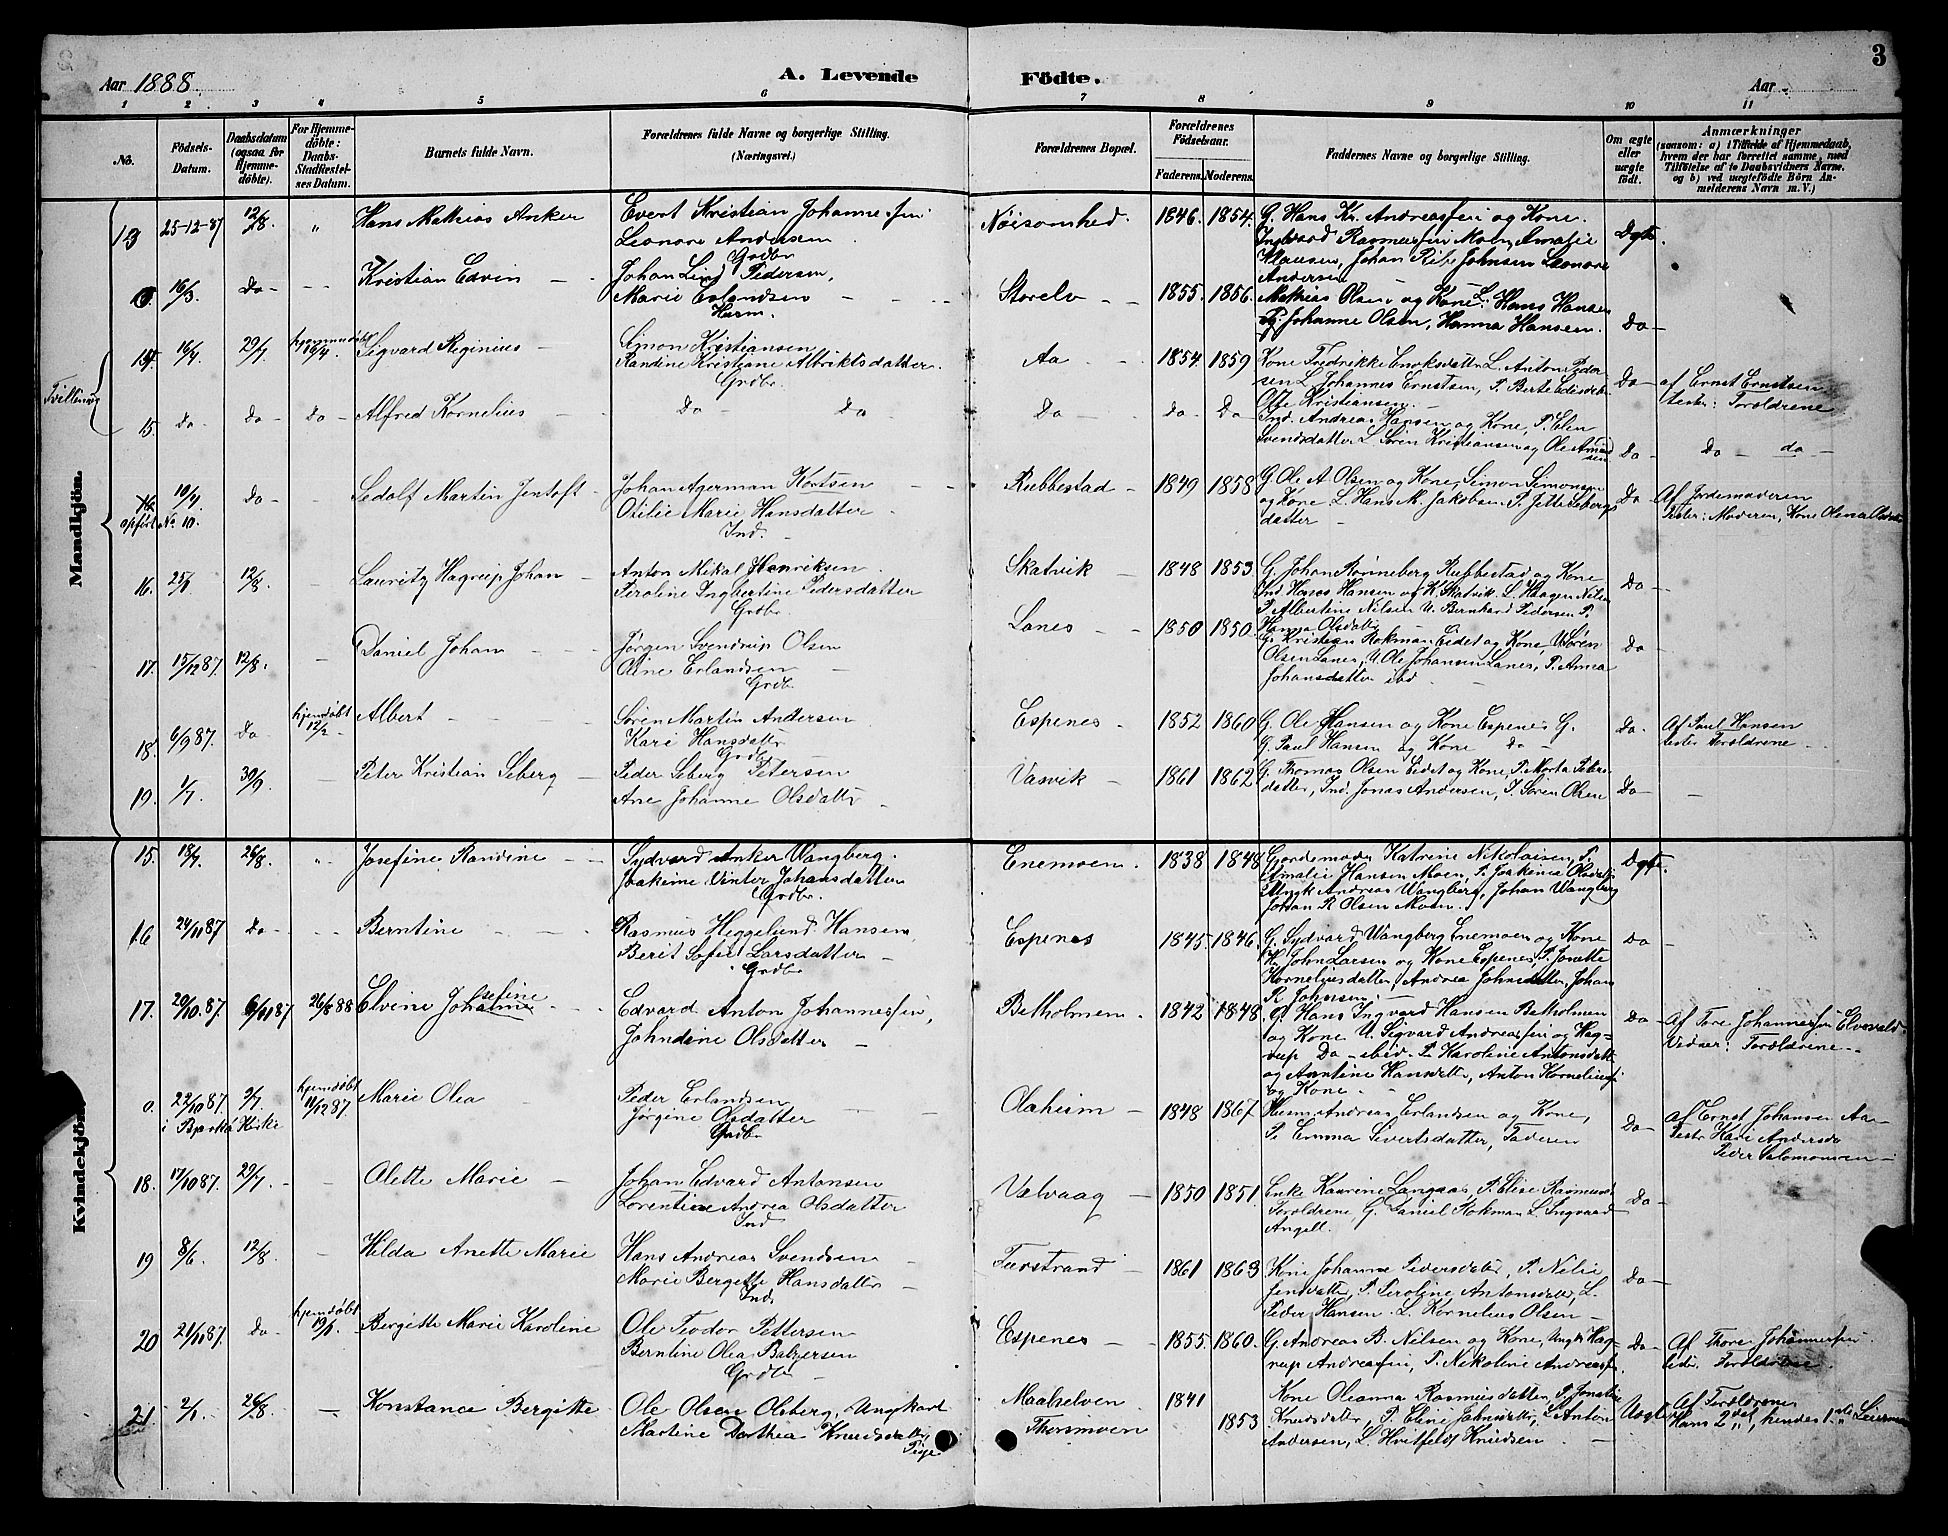 3
Aar 1888
A. Levende Födte.
Aar
1 2. 3 4 5 6 7 8 9 10 11
No.
Födsels-Datum.
Daabsdatum (ogsaa for Hjemme-döbte).
For Hjemme-döbte: Daabs-Stadfæstel-ses Datum.
Barnets fulde Navn.
Forældrenes fulde Navne og borgerlige Stilling. (Næringsvei.)
Forældrenes Bopæl.
Forældrenes Födselsaar.
Faderens. Moderens.
Faddernes Navne og borgerlige Stilling.
Om ægte eller uægte født.
Anmærkninger
(saasom: a) i Tilfælde af Hjemmedaab,
hvem der har forrettet samme, med
Tilföielse af to Daabsvidners Navne.
og b) ved uægtefödte Börn An-
melderens Navn m. V.)
Mandkjön.
13 25-12-87 12/8 " Hans Mathias Anker
Evert Kristian Johannessen
Leonore Andersen
Grdbr
Nöisomhed. 1846. 1854.
G. Hans Kr. Andreassen og Kone.
Ingvard Rasmussen Moen, Amalie
Klausen, Johan Johnsen Leonore
Andersen
Ægte.
0. 16/3. Do - Kristian Edvin
Johan Lind Pedersen,
Marie Erlandsen
Husm.
Storelv 1855. 1856.
Mathias Olsen og Kone. L. Hans Hansen
P. Johanne Olsen, Hanna Hansen.
Do -
Tvillinger
14. 16/4. 29/7 hjemmedöbt 16/4. Sigvard Reginius
Simon Kristiansen
Randine Kristiane Albriktsdatter.
Grdbr.
Aa 1854. 1859
Kone Fredrikke Enoksdatter L. Anton Peder
sen L. Johannes Ernstsen, P. Berte
Olfe Kristiansen
Do -
af Ernst Ernstsen
Forældrene
15. Do - Do - Do - Alfred Kornelius
Do Do
Do - Do - Do
Ind. Andreas Hansen og Kone, P. Elen
Svendsdatter L. Sören Kristiansen og Ole
Do
Do - do -
opfört No 10.
10/4 Do - Sedolf Martin Jentoft
Johan Agerman Kortsen
Otilie Marie Hansdatter
Ind.
Rubbestad - 1849 1858
G. Ole A Olsen og Kone, Simon Simonsen
og Kone L. Hans M. Jakobsen P. Jette Seberg
datter -
Do
Af Jordemoderen
Moderen, Kone Olena
16. 12/8. Lauritz Hagrup Johan
Anton Mikal Henriksen
Peroline Ingbertine Pedersdatter
Grdbr.
Skatvik 1848 1853
G. Johan Rönneberg Rubbestad og Kone
Ind Hans Hansen og K. Skatvik. L. Haagen Nilsen
P. Albertine Nilsen U. Bernhard Pedersen P.
Hanna Olsdatter
Do -
17. 15/12 87. 12/8. Daniel Johan
Jørgen Svendrup Olsen
Oline Erlandsen
Grdb.
Lanes 1850 1850.
G. Kristian Rokman Eidet og Kone, U. Søren
Olsen Lanes, U. Ole Johansen Lanes, P. Anna
Johansdatter ibd
Do -
18. 6/9 87. Do - hjemdøbt 12/2 Albert
Sören Martin Andersen
Kari Hansdatter
Grdb.
Espenes 1852 1860
G. Ole Hansen og Kone Espenes G.
G. Paul Hansen og Kone Do -
Do -
Af Paul Hansen
Forældrene
19. 1/7. 30/9 Peter Kristian Seberg
Peder Seberg Petersen
Ane Johanne Olsdatter
Vasvik 1861 1862
G. Thomas Olsen Eidet og Kone, P. Marta Peders
datter, Ind. Jonas Andersen, P. Sören Olsen
Do -
Kvindekjön.
15. 18/4. 26/8. " Josefine Randine
Sydvard Anker Wangberg.
Joakime Vinter Johansdatter
Grdbr.
Enemoen. 1838 1848
Gjordemoder Katrine Nikolaisen, P.
Amalie Hansen Moen, P. Joakime Olsdatter
Ungk Andreas Wangberg, Johan Wangberg
Johan R Olsen Moen.
Ægte.
16 24/11 87 Do - Berntine
Rasmus Heggelund Hansen,
Berit Sofie Larsdatter
Grdbr
Espenes 1845. 1846.
G. Sydvard Wangberg Enemoen og Kone
John Larsen og Kone Espenes, P. Jonette
Korneliusdatter, Andrea Johnsdatter, Johan
R Johnsen.
Do -
17. 20/10. 87. 6/11 87 26/8 88 Elvine Johanne
Josefine
Edvard Anton Johannessen,
Johndine Olsdatter
Betholmen 1842 1848.
G. Hans Ingvard Hansen Betholmen
og Kone U. Sigvard Andreassen og Hag-
rup Do - ibid. P. Karoline Antonsdatter
og Antine Hansdatter, Anton Korneliussen
og Kone
Do -
Af Tore Johannessen Elvevold.
Vidner: Forældrene.
0. 22/10 87. 2/7. hjemdøbt 11/12 87. Marie Olea
i Bjarkö Kirke
Peder Erlandsen
Jørgine Olsdatter
Grdbr
Olaheim 1848 1867
Husm Andreas Erlandsen og Kone,
P. Emma Sivertsdatter, Faderen
Do -
af Ernst Johansen Aa
Kari Andersdr
Peder Salomonsen
18. 17/10 87. 29/7. Olette Marie
Johan Edvard Antonsen
Lorentine Andrea Olsdatter
Ind
Valvaag 1850 1851
Enke Kaarine Langaas, P. Elise Rasmusd
Forældrene, G. Daniel Rokman L. Ingvard
Angell.
Do -
19 8/6 12/8 Hilda Anette Marie
Hans Andreas Svendsen
Marie Bergitte Hansdatter
Ind.
Furstrand 1861 1863
Kone Johanne Pedersdatter, P. Nilie
Jensdatter, P. Peroline Antonsdatter, L.
Peder Hansen. L. Kornelius Olsen
Do -
20 21/11 87. Do - hjemdöbt Bergitte Marie Karoline
Ole Teodor Pettersen
Berntine Olea Balzersen
Grdbr
Espenes 1855. 1860.
G. Andreas B. Nilsen og Kone, Ungk Hag-
rup Andreassen, P. Nikoline Andreass.
Do -
Af Thore Johannessen
Forældrene
21. 26/8. Konstance Bergitte
Ole Olsen Olsberg, Ungkarl
Martine Dorthea Knudsdatter
Pige
Maalselven
Thorsmoen
1841
1853
Kone Oleanna Rasmusdatter, P. Jonetine
Knudsdatter, P. Eline Johnsdatter, L. Anton
Andersen, L. Hvitfeldt Knudsen
Uægte
Af Forældrene
Hans 2det, hendes 1ste Leiermaal